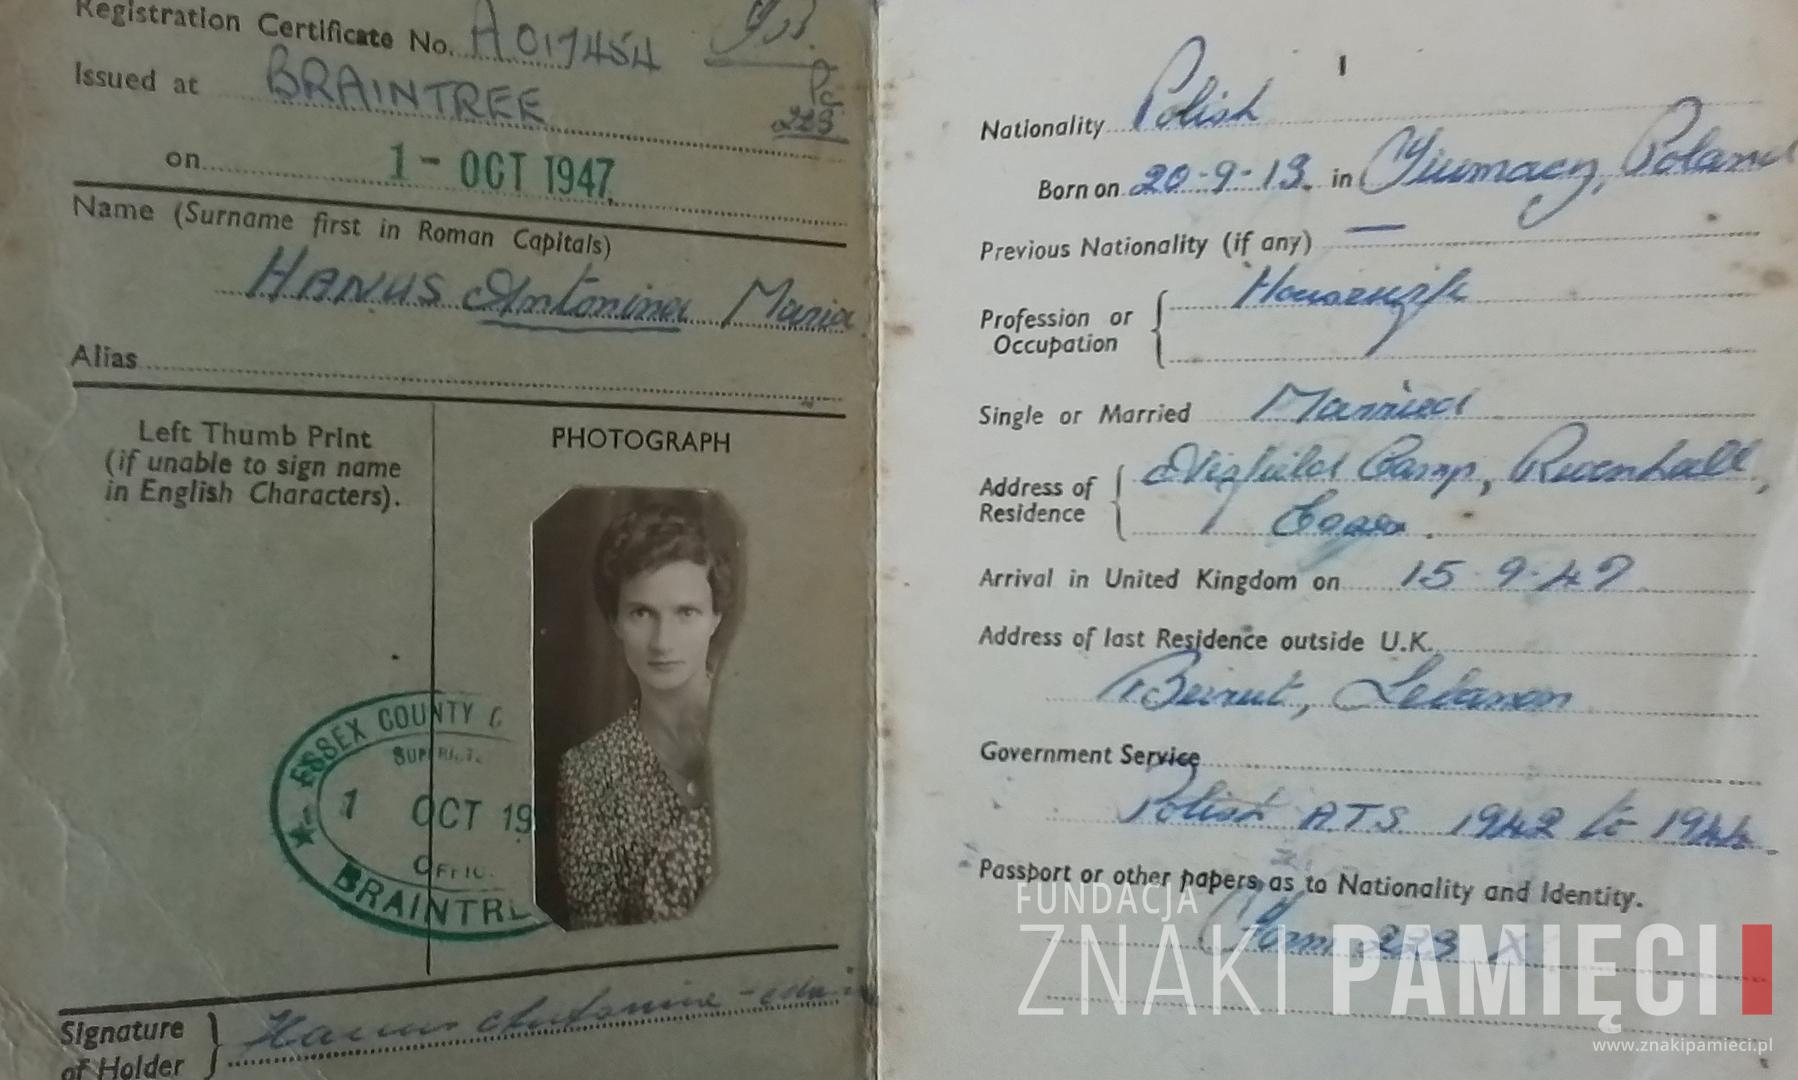 Registration Certificate No. A017454
Issued at BRAINTREE
Pc
223
on 1 - OCT 1947
Name (Surname first in Roman Capitals)
HANUS Antonina Maria
Alias
Left Thumb Print
(if unable to sign name
in English Characters).
PHOTOGRAPH
ESSEX COUNTY C
1 OCT 19
OFFIC.
BRAINTRE
Signature
of Holder
Hanus Antonina
1
Nationality Polish
Born on 20-9-13. in Poland
Previous Nationality (if any) —
Profession or
Occupation
Housewife
Single or Married Married
Address of
Residence
Camp, Rivenhall,
Essex
Arrival in United Kingdom on 15 9-47
Address of last Residence outside U.K.
Beirut, Lebanon
Government Service
Polish A.T.S. 1942 to 1944
Passport or other papers as to Nationality and Identity.
Form 223 X
FUNDACJA
ZNAKI PAMIĘCI
www.znakipamieci.pl